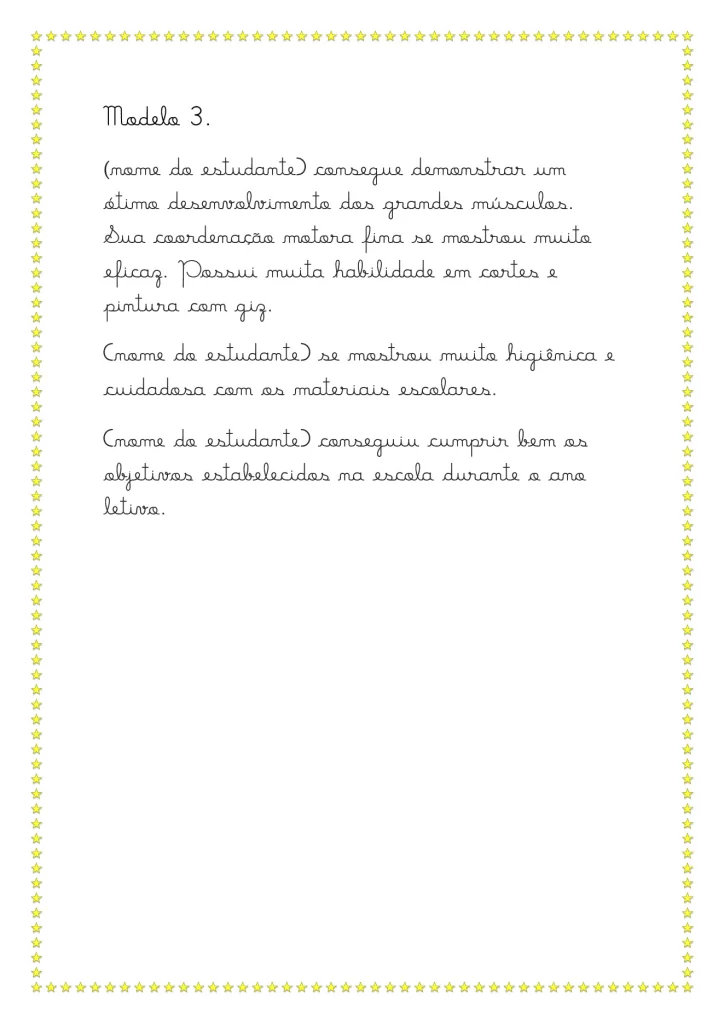 Modelo 3.
(nome do estudante) consegue demonstrar um
ótimo desenvolvimento dos grandes músculos.
Sua coordenação motora fina se mostrou muito
eficaz. Possui muita habilidade em cortes e
pintura com giz.
(nome do estudante) se mostrou muito higiênica e
cuidadosa com os materiais escolares.
(nome do estudante) conseguiu cumprir bem os
objetivos estabelecidos na escola durante o ano
letivo.